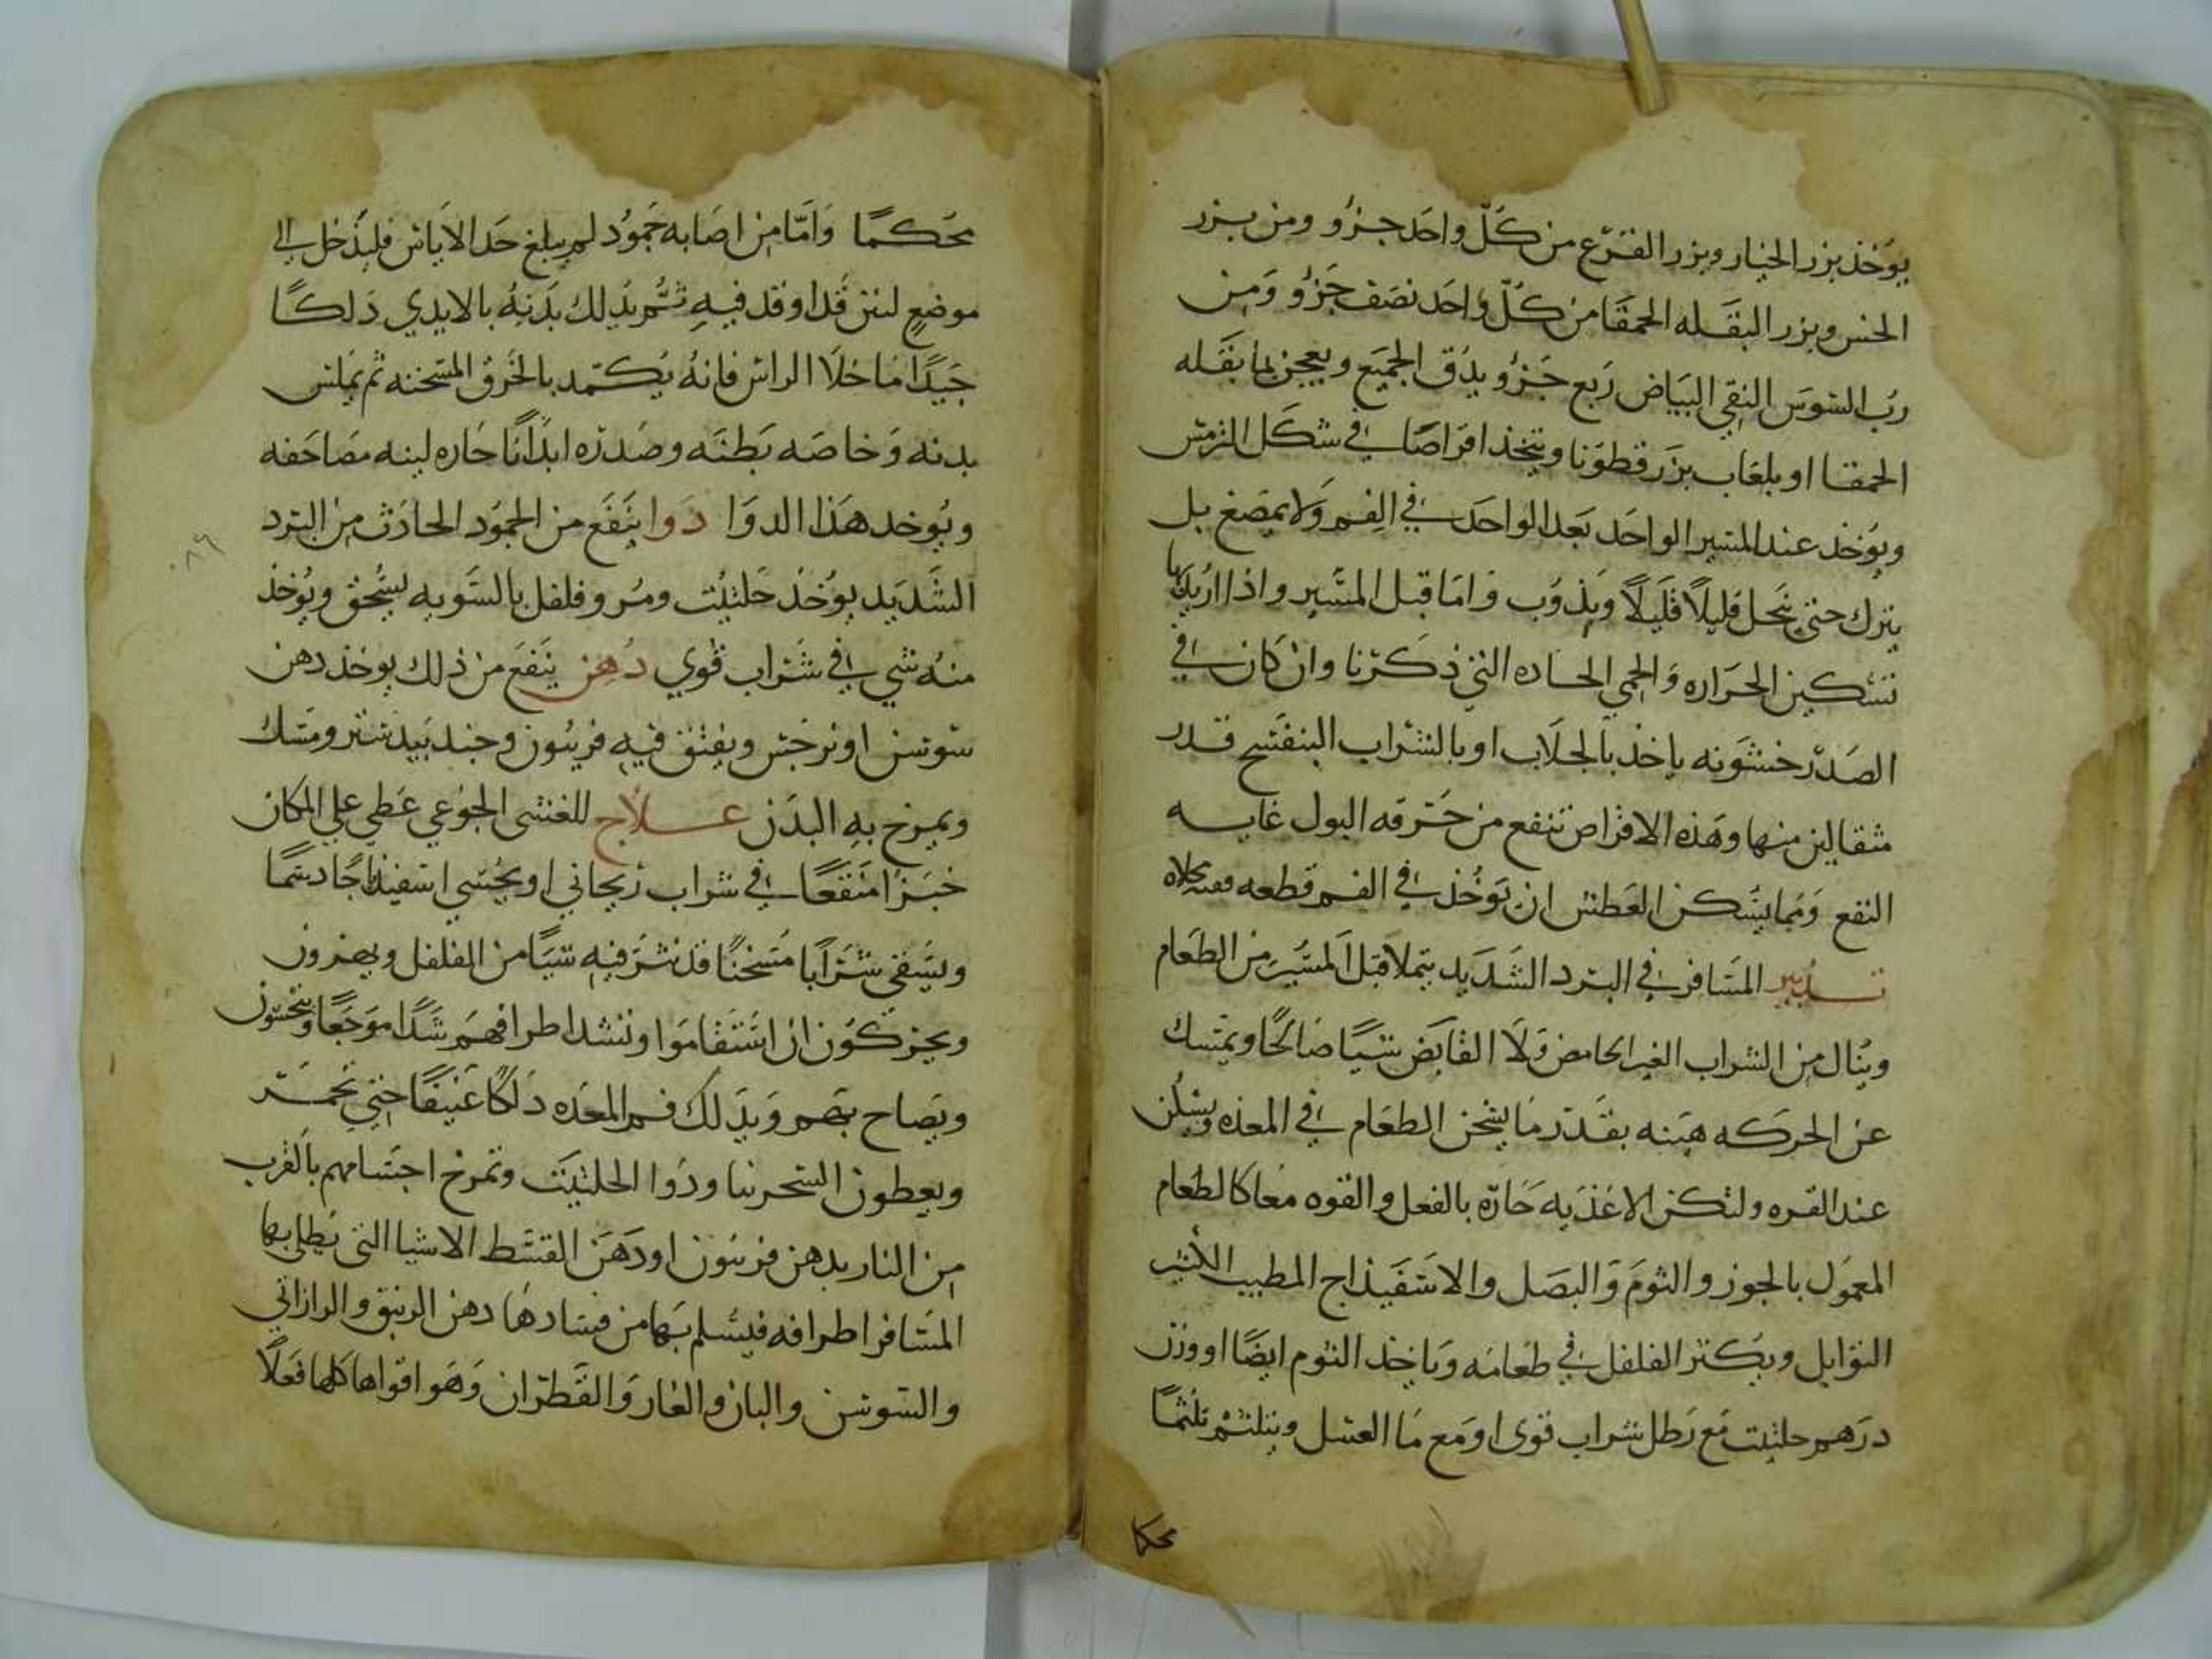 يوخذ بزر الخيار وبزر القرع من كل واحد جزو ومن بزر
الخس وبزر البقله الحمقا من كل واحد نصف جزو ومن
رب السوس النقي البياض ربع جزو يدق الجميع ويعجن بما بقله
الحمقا او بلعاب بزر قطونا ويتخذ اقراصا في شكل الترمس
ويوخذ عند المسير الواحد بعد الواحد في الفم ولا يمضغ بل
يترك حتى ينحل قليلا قليلا ويذوب واما قبل المسير واذا اريد بها
تسكين الحراره والحمى الحاده التي ذكرنا وان كان في
الصدر خشونه ياخذ بالجلاب او بالشراب البنفسج قدر
مثقالين منها وهذه الاقراص تنفع من حرقه البول غايه
النفع ومما يسكن العطش ان توخذ في الفم قطعه فضه مجلاه
تدبير المسافر في البرد الشديد يتملا قبل المسير من الطعام
وينال من الشراب الغير الحامض ولا القابض شيا صالحا ويمسك
عن الحركه هينه بقدر ما يسخن الطعام في المعده ويسكن
عند القره ولتكن الاغذيه حاره بالفعل والقوه معا كالطعام
المعمول بالجوز والثوم والبصل والاسفيذاج المطيب الكثير
التوابل ويكثر الفلفل في طعامه وياخذ الثوم ايضا او وزن
درهم حلتيت مع رطل شراب قوى او مع ما العسل ويتلثم تلثما
محكما
محكما واما من اصابه جمود لم يبلغ حد الاياس فليدخل الى
موضع لين قد اوقد فيه ثم يدلك بدنه بالايدي دلكا
جيدا ما خلا الراس فانه يكمد بالخرق المسخنه ثم يملس
بدنه وخاصه بطنه وصدره ابدانا حاره لينه مصاحفه
ويوخد هذا الدوا دوا ينفع من الجمود الحادث من البرد
الشديد يوخذ حلتيت ومر وفلفل بالسويه يسحق ويوخذ
منه شي في شراب قوي دهن ينفع من ذلك يوخذ دهن
سوسن او نرجس ويفتق فيه فربيون وجندبيدستر ومسك
ويمرخ به البدن علاج للغشى الجوعي عطي علي المكان
خبزا منقعا في شراب ريحاني او يحسي اسفيذاجا دسما
ويسقى شرابا مسخنا قد نثر فيه شيا من الفلفل ويهزون
ويحركون ان استقاموا وتشد اطرافهم شدا موجعا وينخسون
ويصاح بهم ويدلك فم المعده دلكا عنيفا حتي تحمر
ويعطون السحرنيا ودوا الحلتيت وتمرخ اجسامهم بالقرب
من النار بدهن فربيون او دهن القسط الاشيا التي يطلي بها
المسافر اطرافه فيسلم بها من فسادها دهن الزنبق والرازاقي
والسوسن والبان والغار والقطران وهو اقواها كلها فعلا